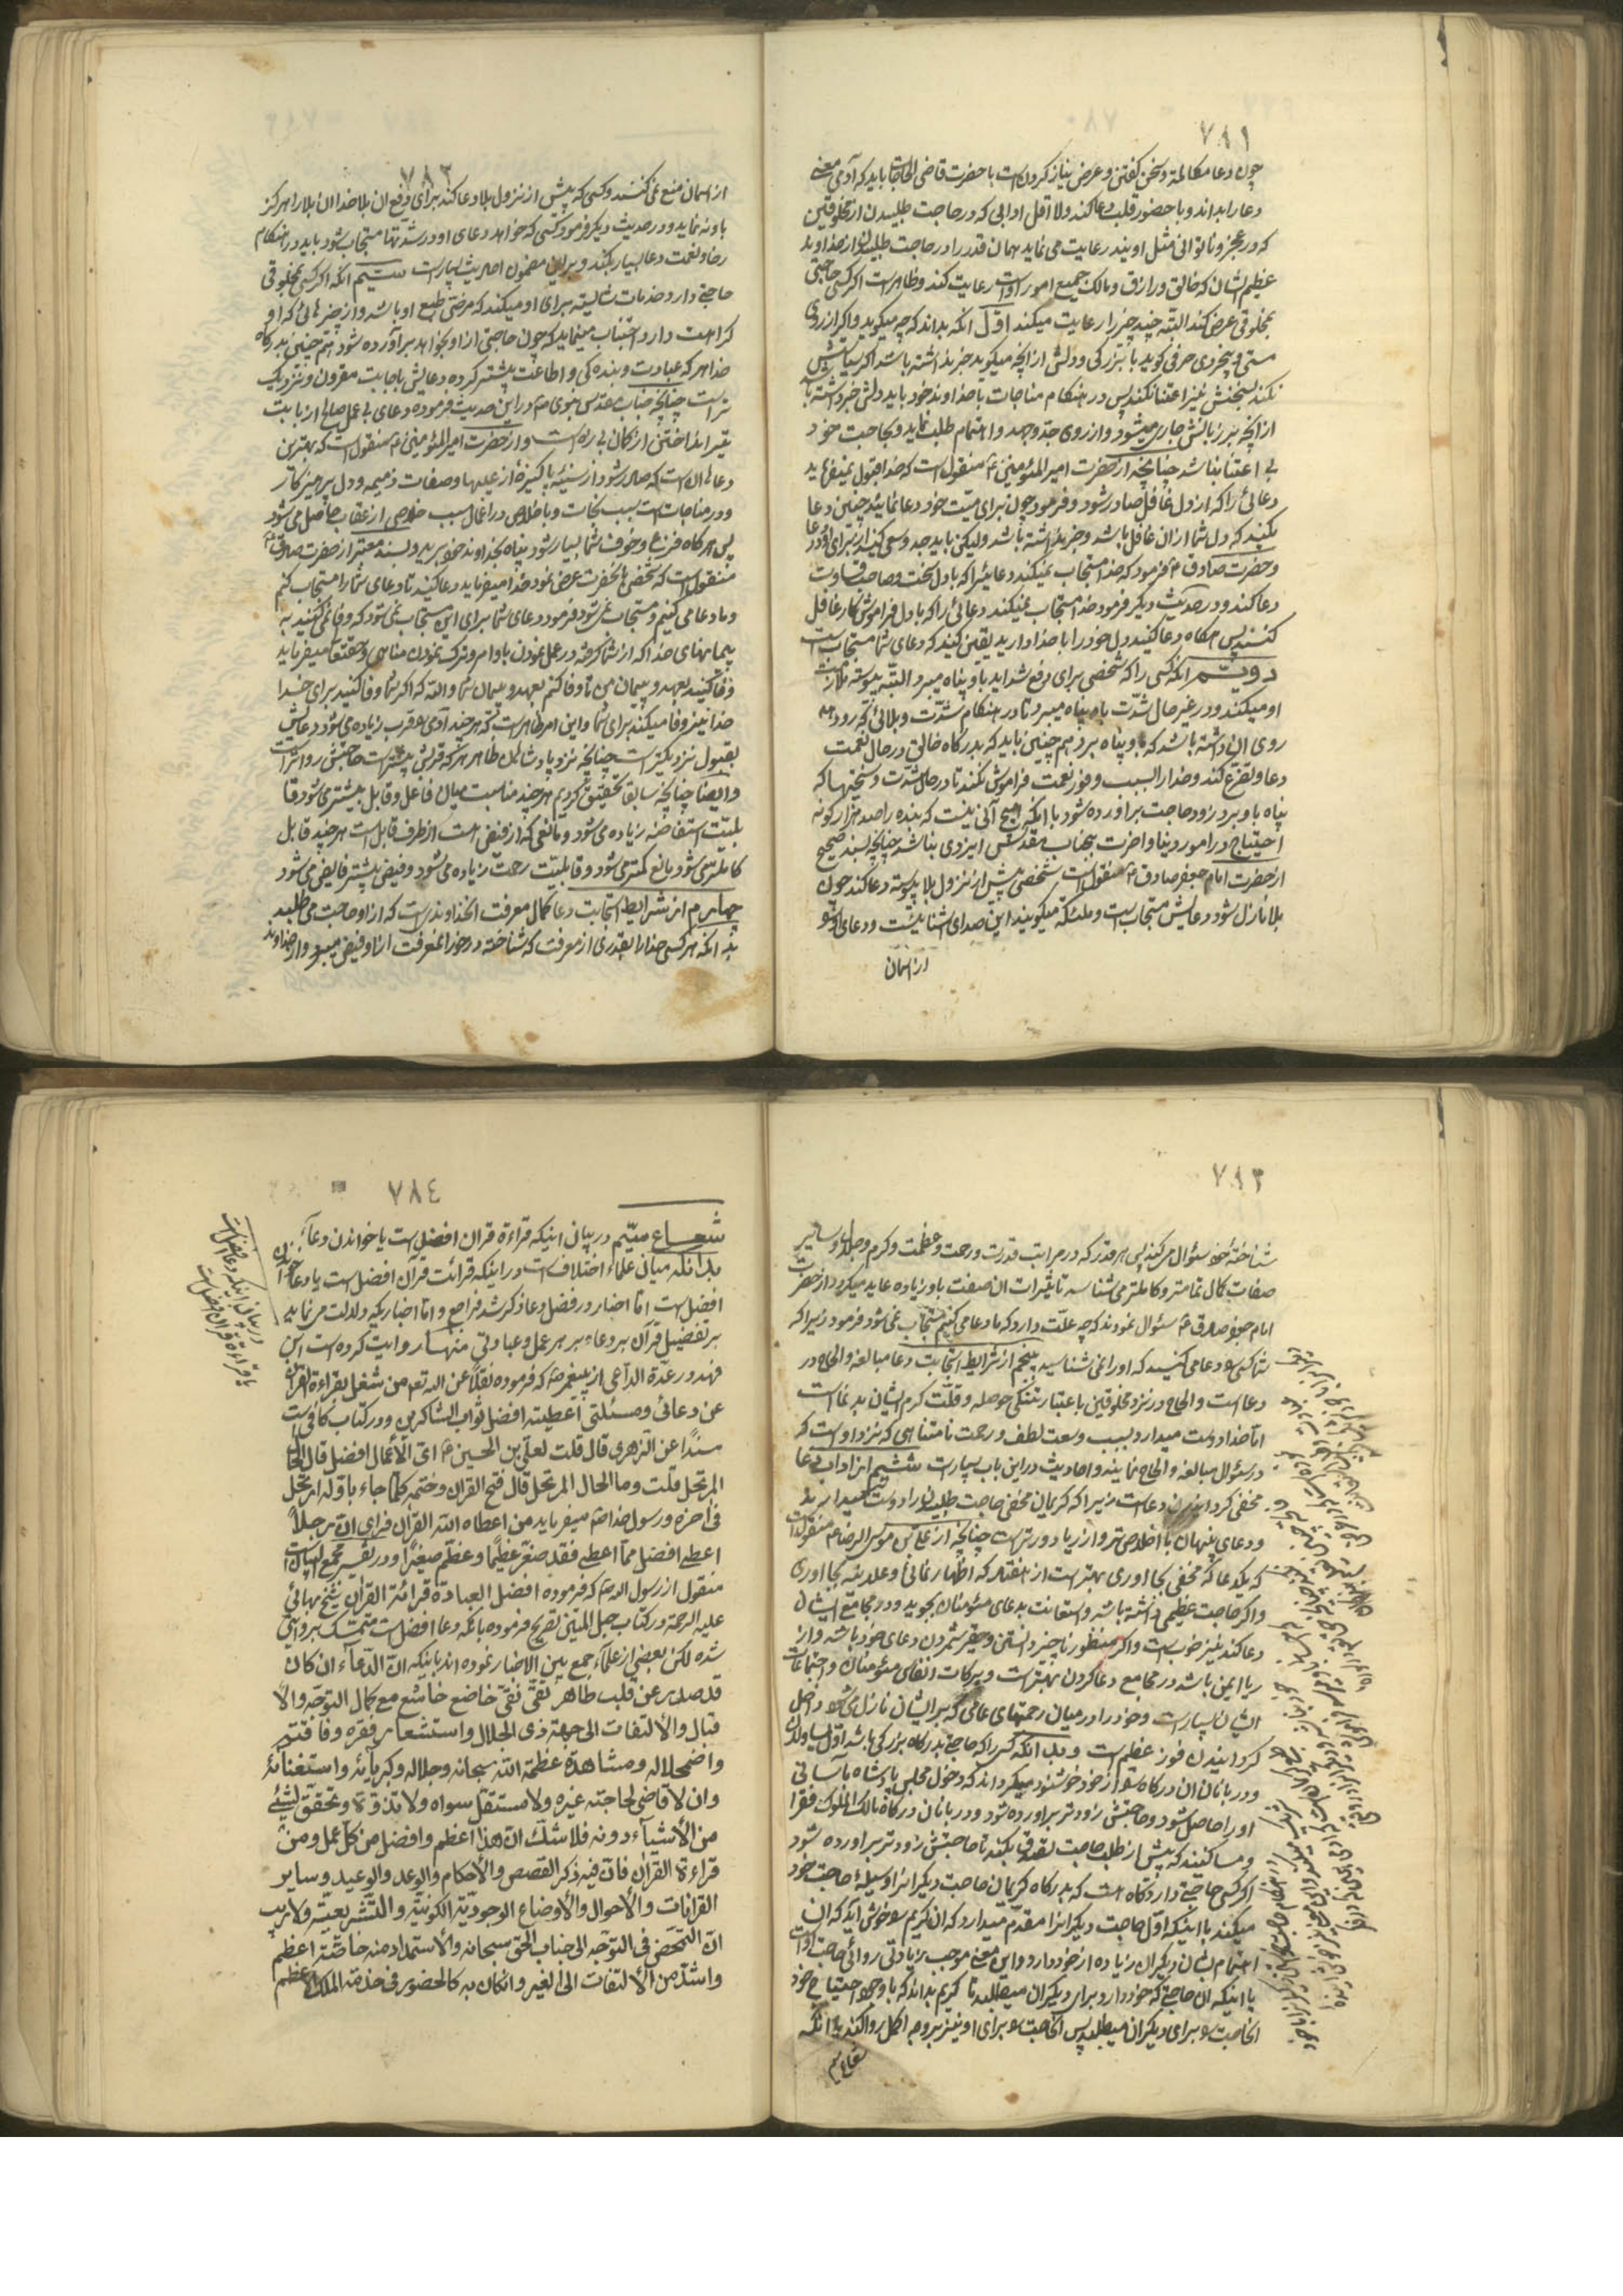 ٧٨١
چون دعا مکالمه و سخن گفتن و عرض نیاز کردنست با حضرت قاضی الحاجات باید که آدمی معنی
دعا را بداند و با حضور قلب دعا کند و لا اقل ادابی که در حاجت طلبیدن از مخلوقین
که در عجز و ناتوانی مثل اویند رعایت می نماید همان قدر را در حاجت طلبیدن از خداوند
عظیم الشان که خالق و رازق و مالک جمیع امور اوست رعایت کند و ظاهر است اکر کسی حاجتی
بمخلوقی عرض کند البته چند چیز را رعایت میکند اول انکه بداند که چه میکوید و اکر از روی
مستی و بیخردی حرفی کوید با بزرکی و دلش از انچه میکوید خبر نداشته باشد اکر سیاستش
نکند بسخنش نیز اعتنا نکند پس در هنکام مناجات با خداوند خود باید دلش خبر داشته باشد
از انچه بر زبانش جاری میشود و از روی جد و جهد و اهتمام طلب نماید و بحاجت خود
بی اعتنا نباشد چنانچه از حضرت امیر المؤمنین ع منقولست که خدا قبول نمیفرماید
دعائی را که از دل غافل صادر شود و فرمود چون برای میت خود دعا نمائید چنین دعا
مکنید که دل شما از ان غافل باشد و خبر نداشته باشد ولیکن باید جد و سعی کنید از برای او در دعا
و حضرت صادق ع فرمود که خدا مستجاب نمیکند دعائیرا که با دل سخت و صاحب قساوت
دعا کند و در حدیث دیکر فرمود خدا مستجاب نمیکند دعائی را که با دل فراموش کار غافل
کنند پس هرکاه دعا کنید دل خود را با خدا دارید یقین کنید که دعای شما مستجاب است
دویّم انکه کسی را که شخصی برای رفع شداید باو پناه میبرد البته پیوسته ملازمت
او میکند و در غیر حال شدت باو پناه میبرد تا در هنکام شدت و بلائی که رو دهد
روی ان داشته باشد که باو پناه برد هم چنین باید که بدرکاه خالق در حال نعمت
دعا و تضرع کند و خدا را بسبب وفور نعمت فراموش نکند تا در حال شدت و سختیها که
پناه باو برد زود حاجت براورده شود با انکه هیچ آنی نیست که بنده را صد هزار کونه
احتیاج در امور دنیا و اخرت بجناب مقدس ایزدی نباشد چنانچه بسند صحیح
از حضرت امام جعفر صادق ع منقولست شخصی پیش از نزول بلا پیوسته دعا کند چون
بلا نازل شود دعایش مستجابست و ملئکه میکویند این صدای اشنائیست و دعای او
از اسمان
٧٨٢
از اسمان منع نمی کنند و کسی که پیش از نزول بلا دعا کند برای دفع ان بلا خدا ان بلا را هرکز
باو نه نماید و در حدیث دیکر فرمود کسی که خواهد دعای او در شدتها مستجاب شود باید در هنکام
رخا و نعمت دعا بسیار بکند و براین مضمون احادیث بسیار است سیّم انکه اکر کسی بمخلوقی
حاجتی دارد خدمات شایسته برای او میکند که مرضی طبع او باشد و از چیزهائی که او
کراهت دارد اجتناب مینماید که چون حاجتی از او بخواهد برآورده شود هم چنین بدرکاه
خدا هر که عبادت و بنده کی و اطاعت بیشتر کرده دعایش باجابت مقرون و نزدیک
تراست چنانچه جناب مقدس نبوی ص در این حدیث فرموده دعای بی عمل صالح از بابت
تیر انداختن از کمان بی زه است و از حضرت امیر المؤمنین ع منقول است که بهترین
دعاها ان است که صادر شود از سینه پاکیزه از عیبها و صفات ذمیمه و دل پرهیزکار
و در مناجات است سبب نجات و با خلاص در اعمال سبب خلاصی از عقاب حاصل می شود
پس هرکاه فزع و خوف شما بسیار شود پناه بخداوند خود برید و بسند معتبر از حضرت صادق ع
منقول است که شخصی بانحضرت عرض نمود خدا میفرماید دعا کنید تا دعای شما را مستجاب کنم
و ما دعا می کنیم و مستجاب نمی شود فرمود دعای شما برای این مستجاب نمی شود که وفا نمی کنید به
پیمانهای خدا که از شما کرفته در عمل نمودن باوامر و ترک نمودن مناهی و حقتعا میفرماید
وفا کنید بعهد و پیمان من تا وفا کنم بعهد و پیمان شما والله که اکر شما وفا کنید برای خدا
خدا نیز وفا میکند برای شما و این امر ظاهر است که هر چند آدمی را قرب زیاده می شود دعایش
بقبول نزدیکتر است چنانچه نزد پادشاهان ظاهر هر که قربش بیشتر است حاجتش رواتر است
و ایضا چنانچه سابقا تحقیق کردیم هر چند مناسبت میان فاعل و قابل بیشتر می شود قا
بلیت استفاضه زیاده می شود و مانعی که از فیض است از طرف قابل است هر چند قابل
کاملتر می شود مانع کمتر می شود و قابلیت رحمت زیاده می شود و فیض بیشتر فایض می شود
چهارم از شرایط استجابت دعا کمال معرفت انخداوند است که از او حاجت می طلبد
بد انکه هر کسی خدا را بقدری از معرفت که شناخته در خور انمعرفت از او فیض میبرد و از خداوند
٧٨٣
شناختهٔ خود سئوال میکند پس هر قدر که در مراتب قدرت و رحمت و عظمت و کرم و جلال و سایر
صفات کمال تمامتر و کاملتر می شناسد تاثیرات ان صفت باو زیاده عاید میکردد از حضرت
امام جعفر صادق ع سئوال نمودند که چه علّت دارد که ما دعا می کنیم مستجاب نمی شود فرمود زیرا که
شما کسی را دعا می کنید که او را نمی شناسید پنجم از شرایط استجابت دعا مبالغه و الحاح در
دعا است و الحاح در نزد مخلوقین باعتبار تنکی حوصله و قلّت کرم ایشان بدنما است
امّا خدا دوست میدارد بسبب وسعت لطف و رحمت نامتناهی که نزد اوست که
در سئوال مبالغه و الحاح نمایند و احادیث در این باب بسیار است ششم از اداب دعا
مخفی کردانیدن دعا است زیرا که کریمان مخفی حاجت طلبیدن را دوست میدارند
و دعای پنهان با اخلاص تر و از ریا دورتر است چنانچه از علی بن موسی الرضا ع منقولست
که یکدعا که مخفی بجا اوری بهتر است از هفتاد که اظهار نمائی و علانیه بجا اوری
و اکر حاجت عظیمی داشته باشد و استعانت بدعای مؤمنان بجوید و در مجامع ایشان
دعا کند نیز خوبست و اکر منظور ناچیز دانستن و حقیر شمردن دعای خود باشد و از
ریا ایمن باشد در مجامع دعا کردن بهتر است و برکات انفاس مؤمنان و اجتماعات
ایشان بسیار است و خود را در میان رحمتهای عامی که بر ایشان نازل می شود داخل
کردانیدن فوز عظیم است و بدانکه کسی را که حاجتی بدرکاه بزرکی باشد اول
و دربانان ان درکاه را از خود خوشنود میکرداند که دخول مجلس پادشاه بآسانی
او را حاصل شود و حاجتش زودتر براورده شود و دربانان درکاه مالک الملوک فقرا
و مساکینند که پیش از طلب حاجت تصدق بکند تا حاجتش زودتر براورده شود
اکر کسی حاجتی دارد کاه است که بدرکاه کریمان حاجت دیکرانرا وسیلهٔ حاجت خود
میکند با اینکه اول حاجت دیکرانرا مقدم میدارد که ان کریم را خوش اید که ان
اهتمام بشان دیکران زیاده از خود دارد و این معنی موجب زیادتی روائی حاجت اوست
یا اینکه ان حاجتی که خود دارد برای دیکران میطلبد تا کریم بداند که با وجود احتیاج خود
انحاجت را برای دیکران میطلبد پس انحاجت را برای او نیز بر وجه اکمل روا کند بدانکه
شعاع سیم
٧٨٤
شعاع سیّم در بیان اینکه قراءة قران افضل است یا خواندن دعاء
بدانکه میان علماء اختلاف است در اینکه قرائت قرآن افضل است یا دعا خواندن
افضل است امّا اخبار در فضل دعا ذکر شد فراجع و امّا اخباریکه دلالت می نماید
بر تفضیل قرآن بر دعاء بر هر عمل و عبادتی منها روایت کرده است ابن
فهد در عدّة الدّاعی از پیغمبر ص که فرموده نقلاً عن الله تع من شغل بقراءة القران
عن دعائی و مسئلتی اعطیته افضل ثواب الشاکرین و در کتاب کافی است
مسنداً عن الزهری قال قلت لعلیّ بن الحسین ع ایّ الأعمال افضل قال الحال
المرتحل قلت و ما الحال المرتحل قال فتح القران و ختمه کلّما جاء باوّله ارتحل
فی آخره و رسول خدا ص میفرماید من اعطاه الله القران فرای انّ رجلاً
اعطی افضل ممّا اعطی فقد صغّر عظیماً و عظّم صغیراً و در تفسیر مجمع البیان است
منقول از رسول الله ص که فرموده افضل العبادة قرائة القران شیخ بهائی
علیه الرحمة در کتاب حبل المتین تصریح فرموده بانکه دعا افضل است متمسک بروایتی
شده لکن بعضی از علماء جمع بین الاخبار نموده اند باینکه انّ الدّعاء ان کان
قد صدر عن قلب طاهر تقیّ نقیّ خاضع خاشع مع کمال التوجّه والأ
قبال والألتفات الی جهة ذی الجلال واستشعار فقره و فاقته
واضمحلاله و مشاهدة عظمة الله سبحانه و جلاله و کبریائه و استغنائه
وان لا قاضی لحاجته غیره و لا مستقل سواه و لا تذوّت و تحقّق لشیئ
من الأشیاء دونه فلا شکّ انّ هذا اعظم و افضل من کلّ عمل و من
قراءة القران فانّ فیه ذکر القصص والأحکام والوعد والوعید و سایر
القرانات والأحوال والأوضاع الوجودیّة الکونیّة والتّشریعیّة و لا ریب
انّ التمحّض فی التوجّه الی جناب الحق سبحانه والأستمداد منه خاصّة اعظم
واشدّ من الألتفات الی الغیر و انکان به کالحضور فی خدمة الملک الاعظم
در بیان اینکه دعا افضل است
یا قراءة قران افضل است